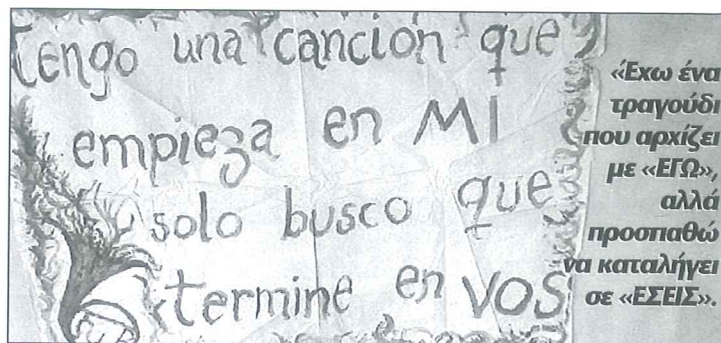 tengo una canción que
empieza en MI
solo busco que
termine en VOS
«Έχω ένα
τραγούδι
που αρχίζει
με «ΕΓΩ»,
αλλά
προσπαθώ
να καταλήγει
σε «ΕΣΕΙΣ».